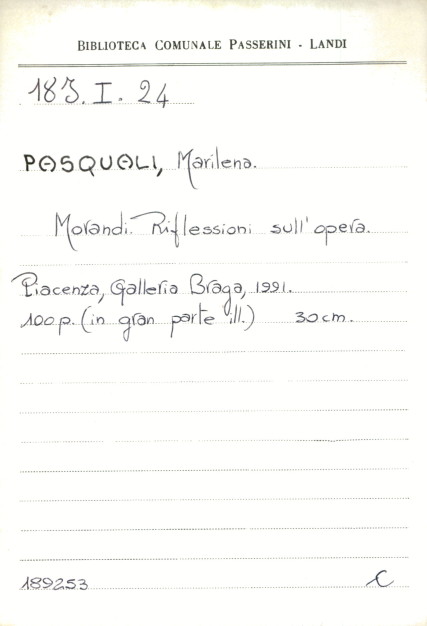 BIBLIOTECA COMUNALE PASSERINI - LANDI
183. I. 24
PASQUALI, Marilena.
Morandi. Riflessioni sull'opera.
Piacenza, Galleria Braga, 1991.
100 p. (in gran parte ill.) 30 cm.
189253 C